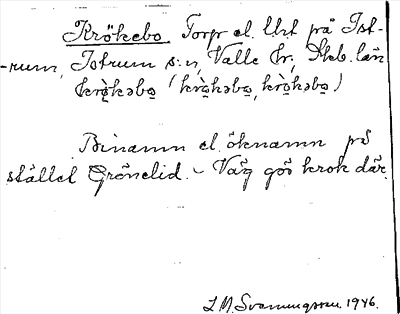 Krökebo. Torp el. lht på Ist-
-rum, Istrum s:n, Valle hr, Skb. län
krö̀kəbo̱ (krö̀kəbo̱, krö̀kəbo̱)
Binamn el. öknamn på
stället Grönelid. - Väg gör krok där.
L.M. Svanungsson. 1946.